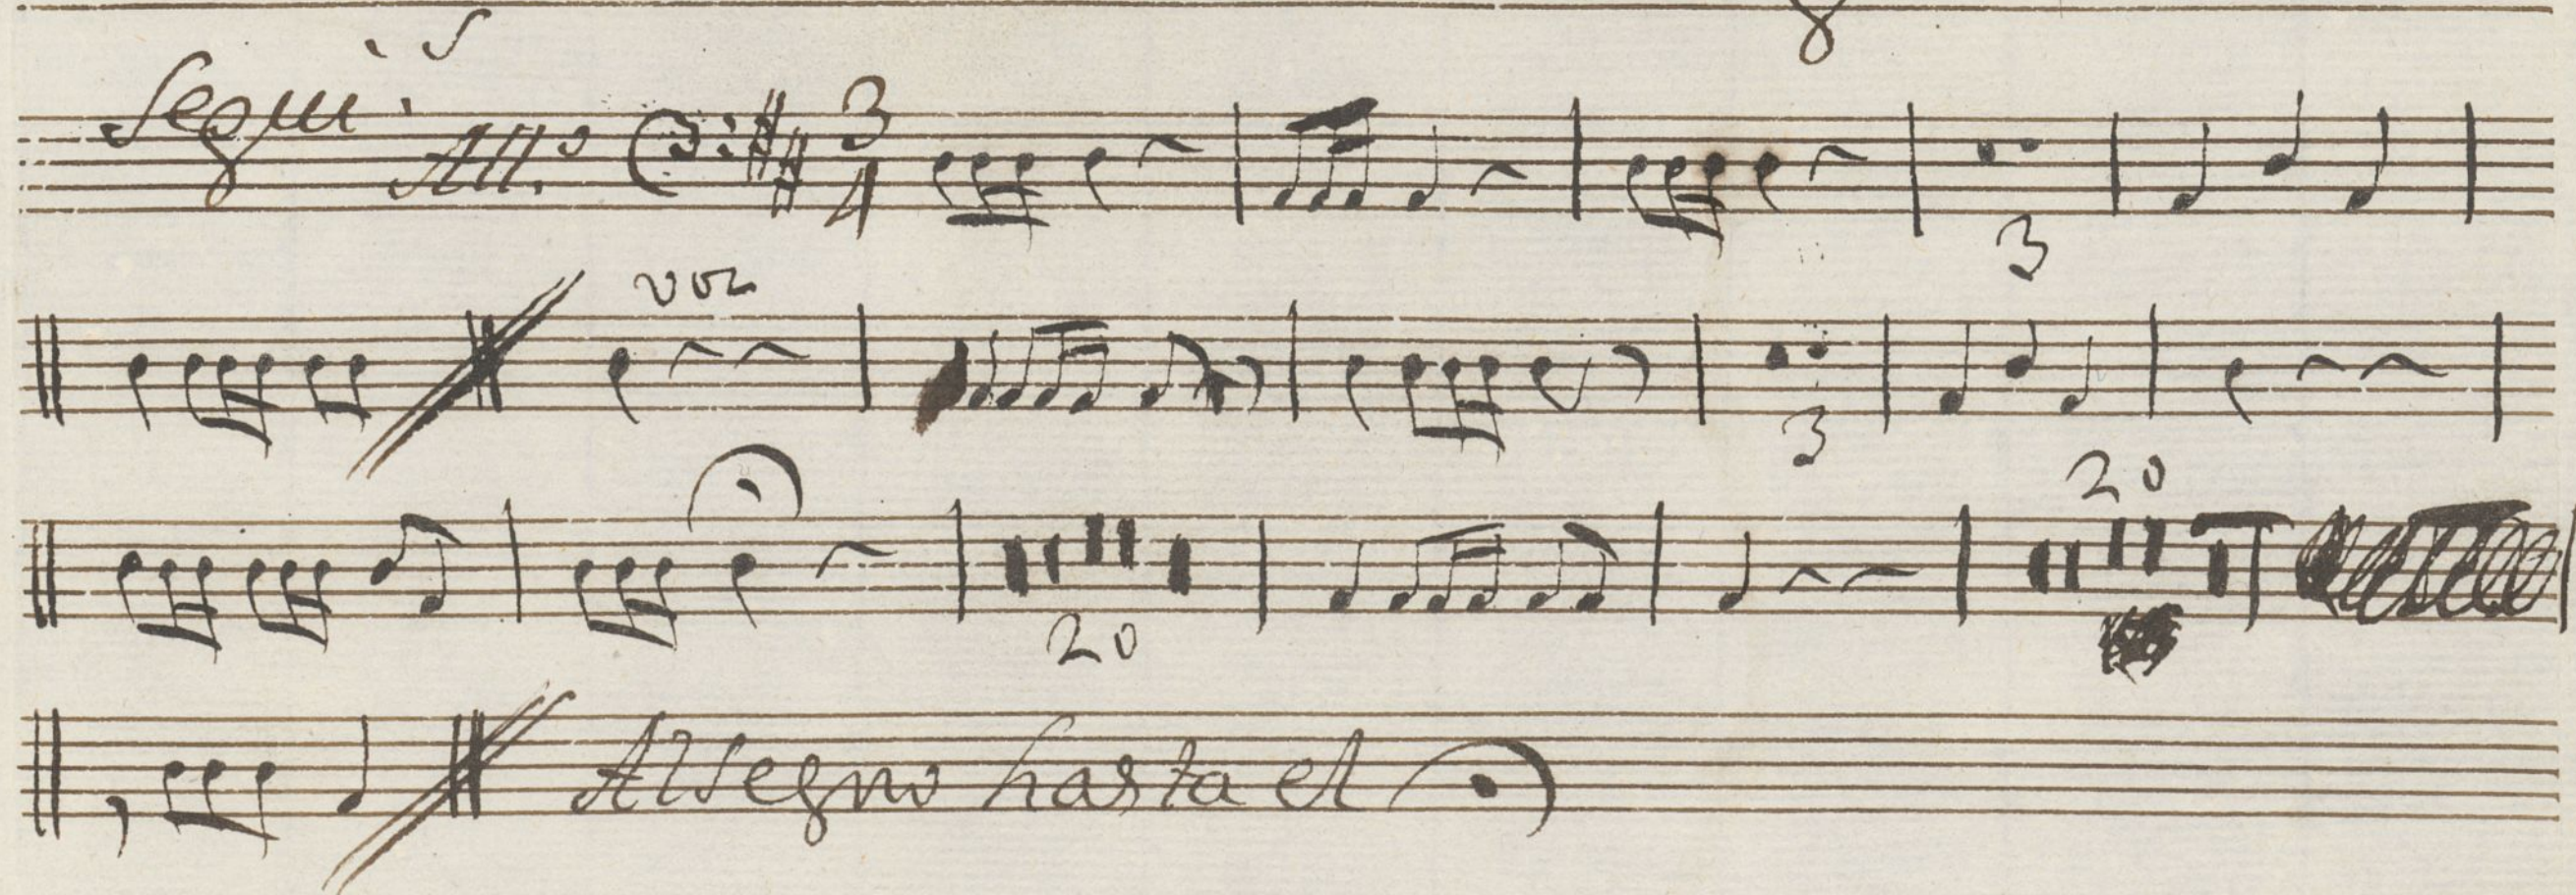 Segui.s All.o 3/4 3
voz 3
20 20
Al segno hasta el